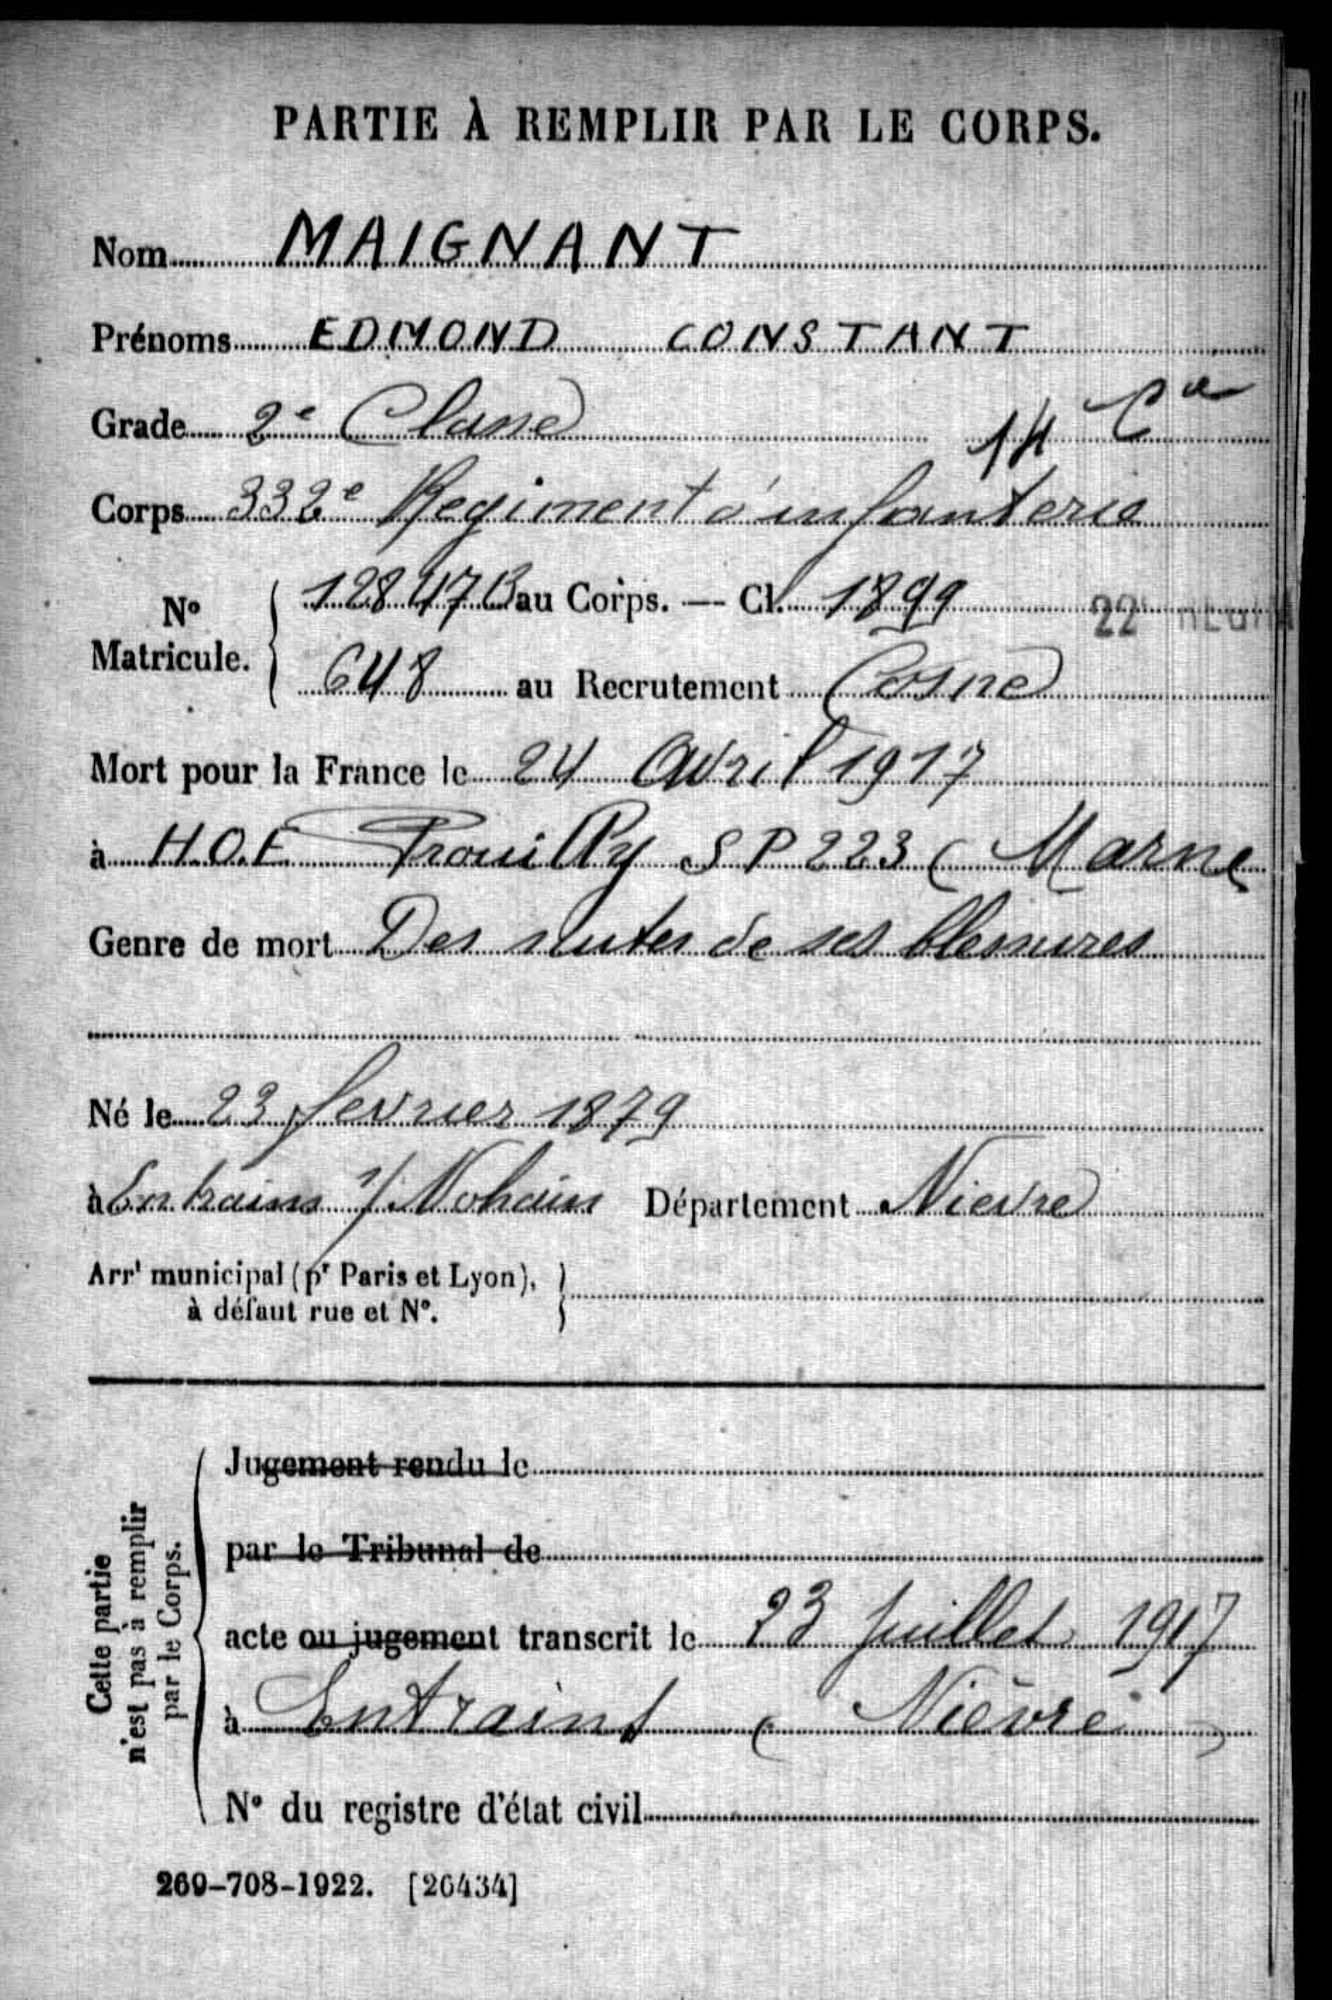 PARTIE À REMPLIR PAR LE CORPS.
Nom MAIGNANT
Prénoms EDMOND CONSTANT
Grade 2e Classe 14 Cie
Corps 332e Regiment d'infanterie
No Matricule. 12847B au Corps. — Cl. 1899 22
648 au Recrutement Cosne
Mort pour la France le 24 Avril 1917
à H.O.E Prouilly SP 223 ( Marne
Genre de mort Des suites de ses blessures
Né le 23 fevrier 1879
à Entrains s/ Nohain Département Nievre
Arrt municipal (pr Paris et Lyon),
à défaut rue et No.
Cette partie
n'est pas à remplir
par le Corps.
Jugement rendu le
par le Tribunal de
acte ou jugement transcrit le 23 Juillet 1917
à Entrains ( Nièvre )
No du registre d'état civil
269-708-1922. [26434]